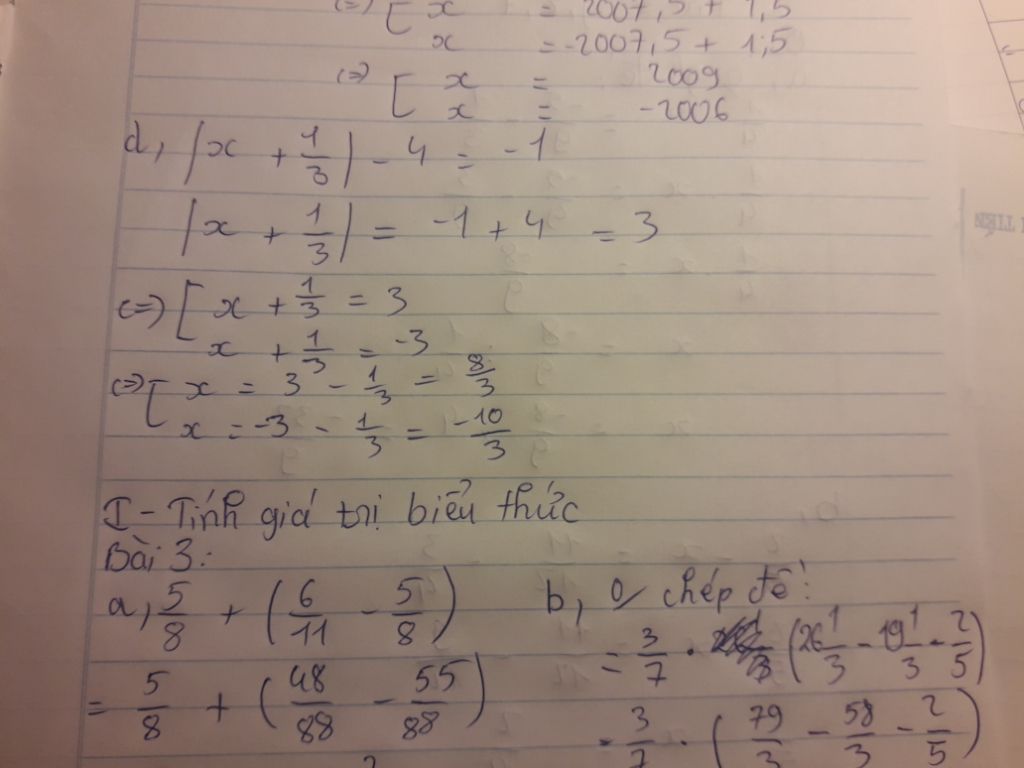 (=) [ x = 2007,5 + 1,5
x = -2007,5 + 1,5
(=) [ x = 2009
x = -2006
d, |x + 1/3| - 4 = -1
|x + 1/3| = -1 + 4 = 3
(=) [ x + 1/3 = 3
x + 1/3 = -3
(=) [ x = 3 - 1/3 = 8/3
x = -3 - 1/3 = -10/3
I - Tính giá trị biểu thức
Bài 3:
a, 5/8 + (6/11 - 5/8)
= 5/8 + (48/88 - 55/88)
b, 0/ chép đề!
= 3/7 . (26 1/3 - 19 1/3 - 2/5)
= 3/7 . (79/3 - 58/3 - 2/5)